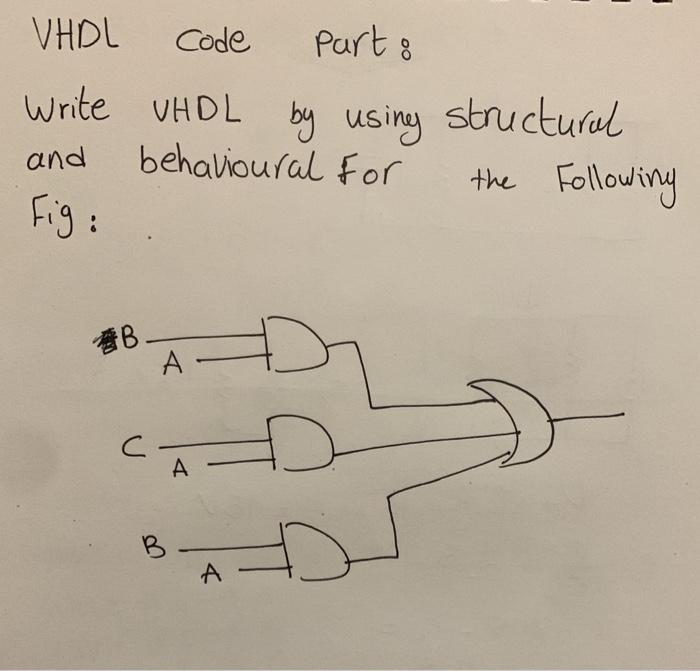 VHDL Code Part:
Write VHDL by using structural
and behavioural For the Following
Fig:
B
A
C
A
B
A